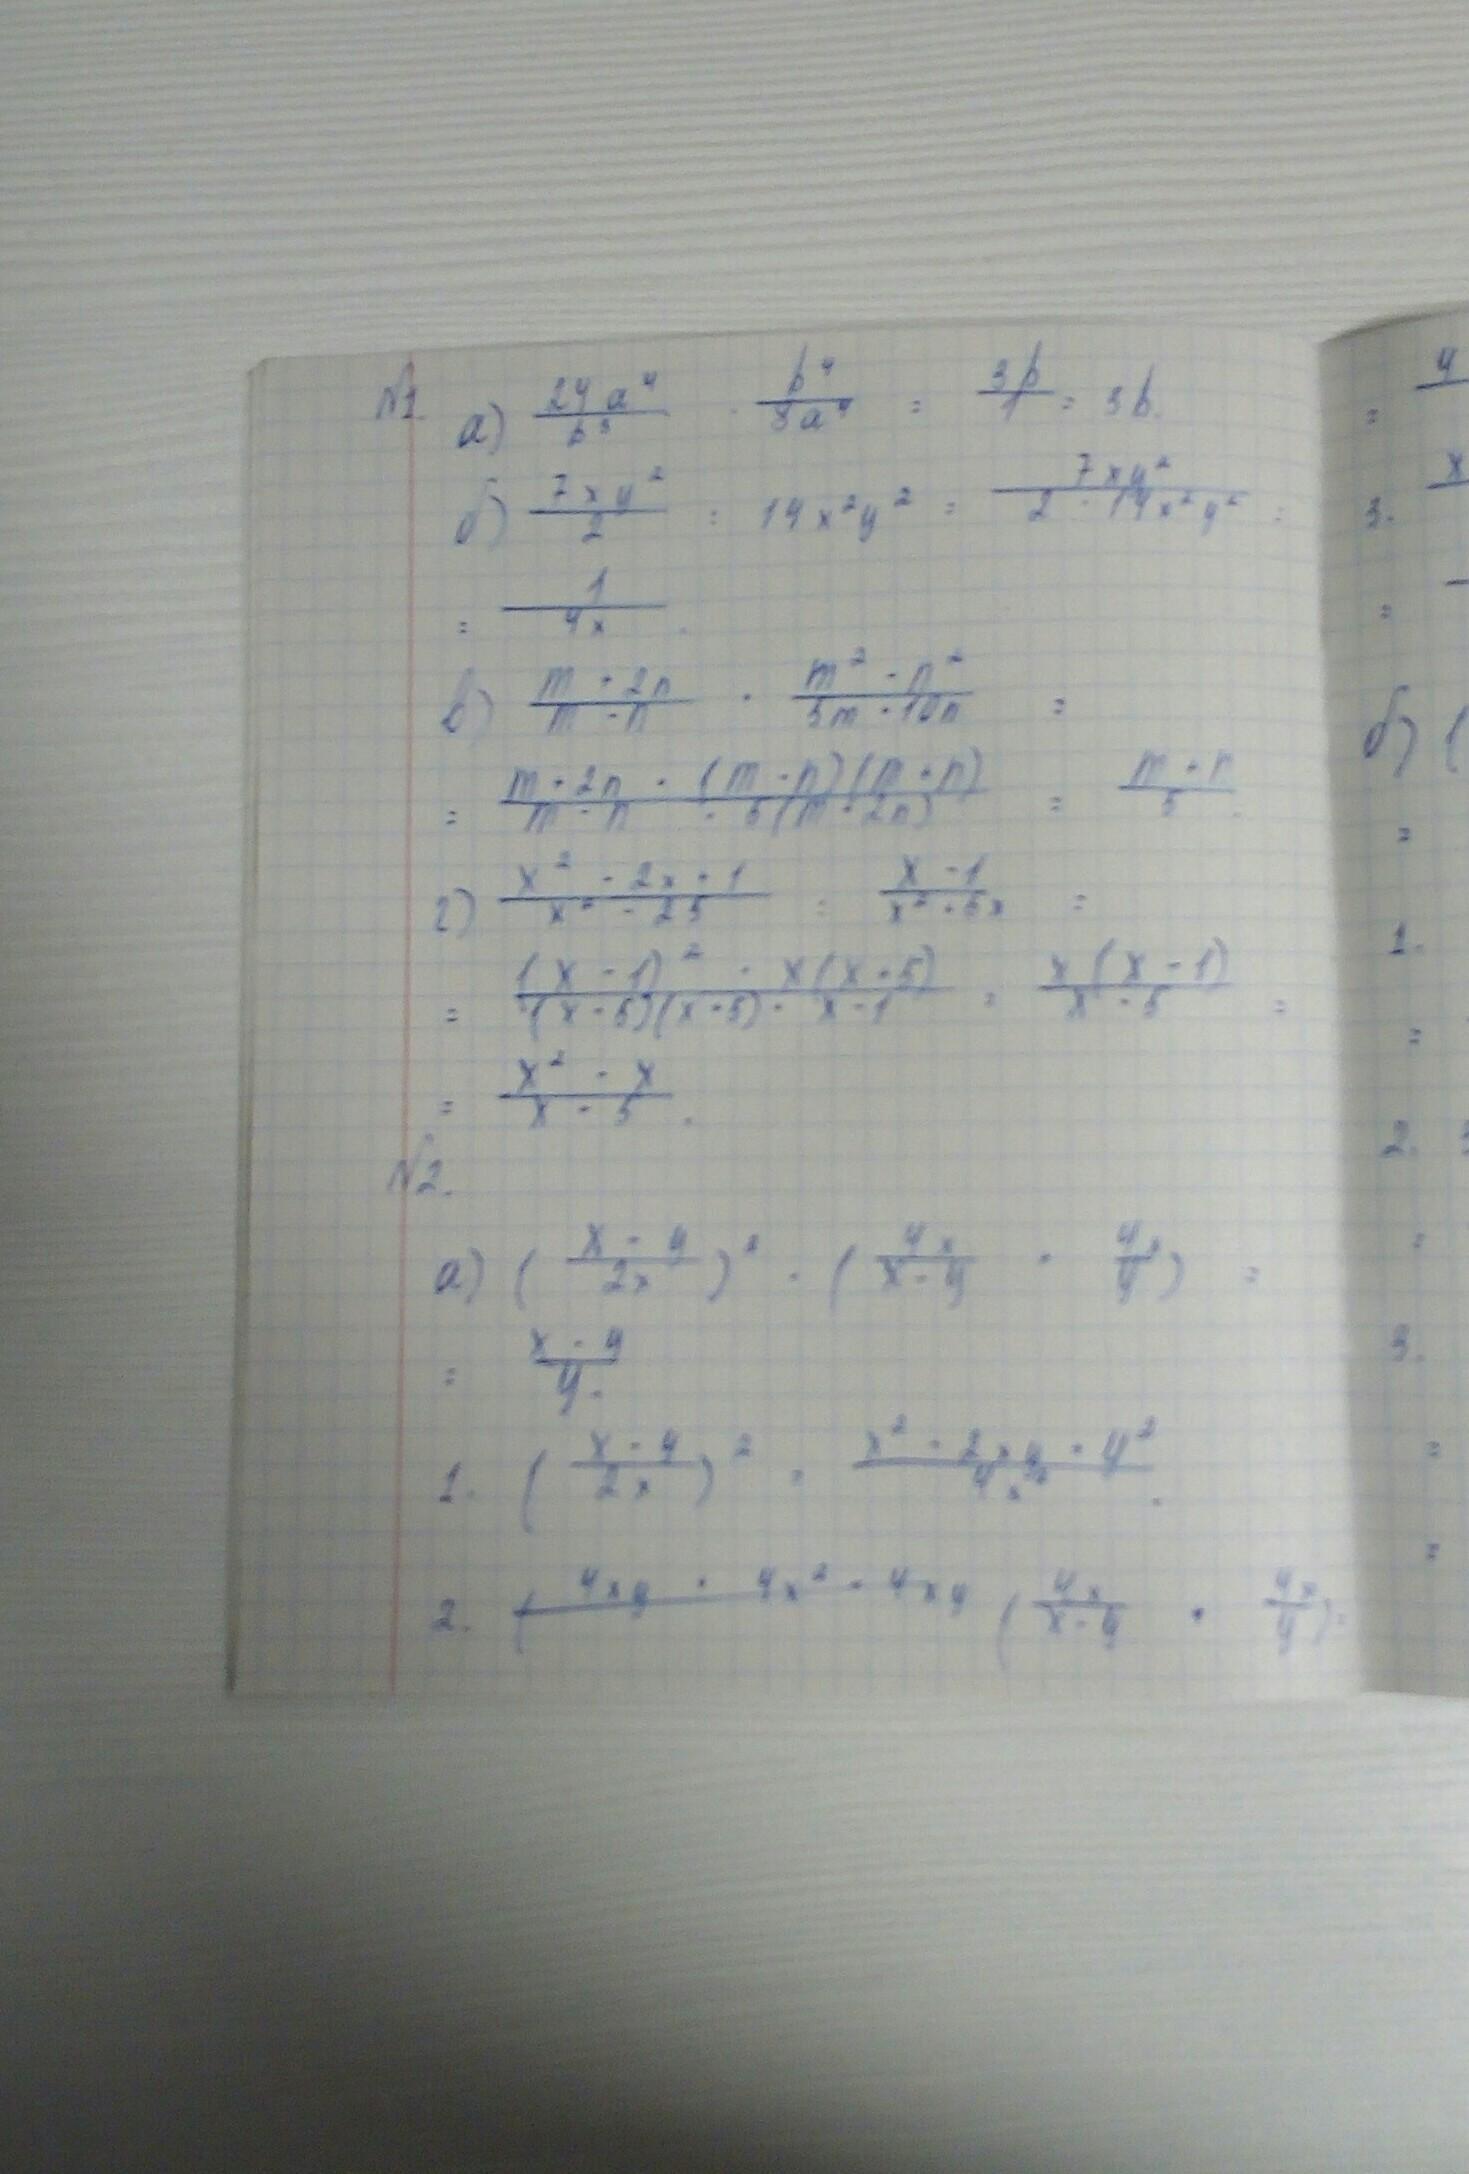 №1. а) 24a⁴/b³ · b⁴/8a⁴ = 3b/1 = 3b.
б) 7xy²/2 : 14x²y² = 7xy²/2 · 14x²y² =
= 1/4x.
в) m + 2n/m - n · m² - n²/5m + 10n =
= m + 2n · (m - n)(m + n)/m - n · 5(m + 2n) = m + n/5.
г) x² - 2x + 1/x² - 25 : x - 1/x² + 5x =
= (x - 1)² · x(x + 5)/(x - 5)(x + 5) · x - 1 = x(x - 1)/x - 5 =
= x² - x/x - 5.
№2.
а) (x - y/2x)² · (4x/x - y + 4x/y) =
= x - y/y.
1. (x - y/2x)² = x² - 2xy + y²/4x².
2. (4x/x - y + 4x/y) =
=
3.
=
б) (
=
1.
=
2.
=
3.
=
=